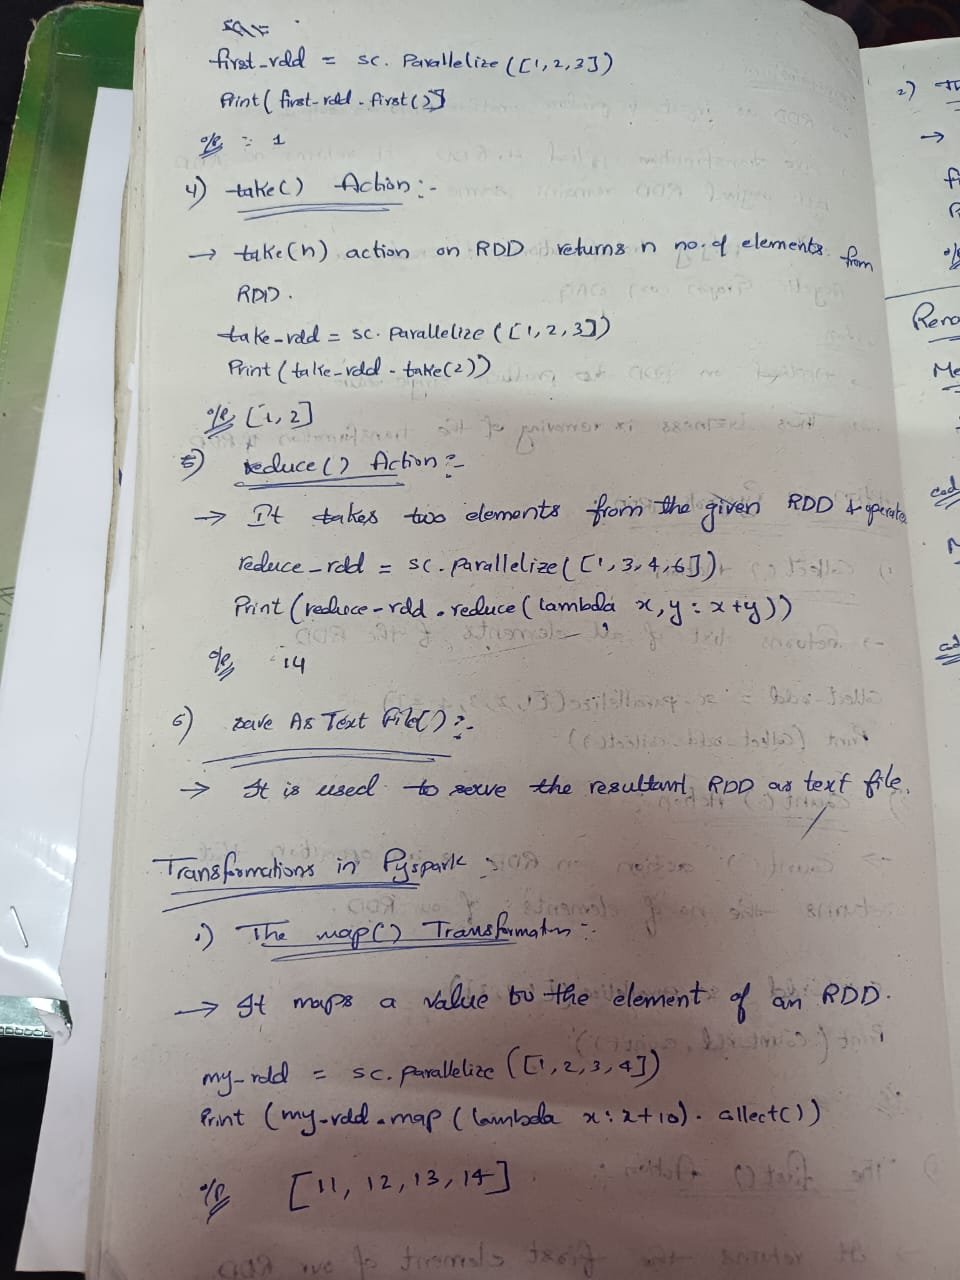 first_rdd = sc. Parallelize ([1,2,3])
Print( first-rdd . first()]
o/p : 1
4) take() Action :-
→ take(n) action on RDD returns n no. of elements from
RDD.
take-rdd = sc. parallelize ([1,2,3])
Print (take-rdd . take(2))
o/p [1,2]
5) reduce() Action :-
→ It takes two elements from the given RDD & operate
reduce_rdd = sc. parallelize([1,3,4,6])
Print (reduce-rdd . reduce (lambda x,y : x+y))
o/p :14
6) save As Text File() :-
→ It is used to save the resultant RDD as text file.
Transformations in Pyspark :-
1) The map() Transformation :-
→ It maps a value to the element of an RDD.
my-rdd = sc. parallelize ([1,2,3,4])
Print (my-rdd . map (lambda x: x+10). collect())
o/p [11, 12, 13, 14]
2)
→